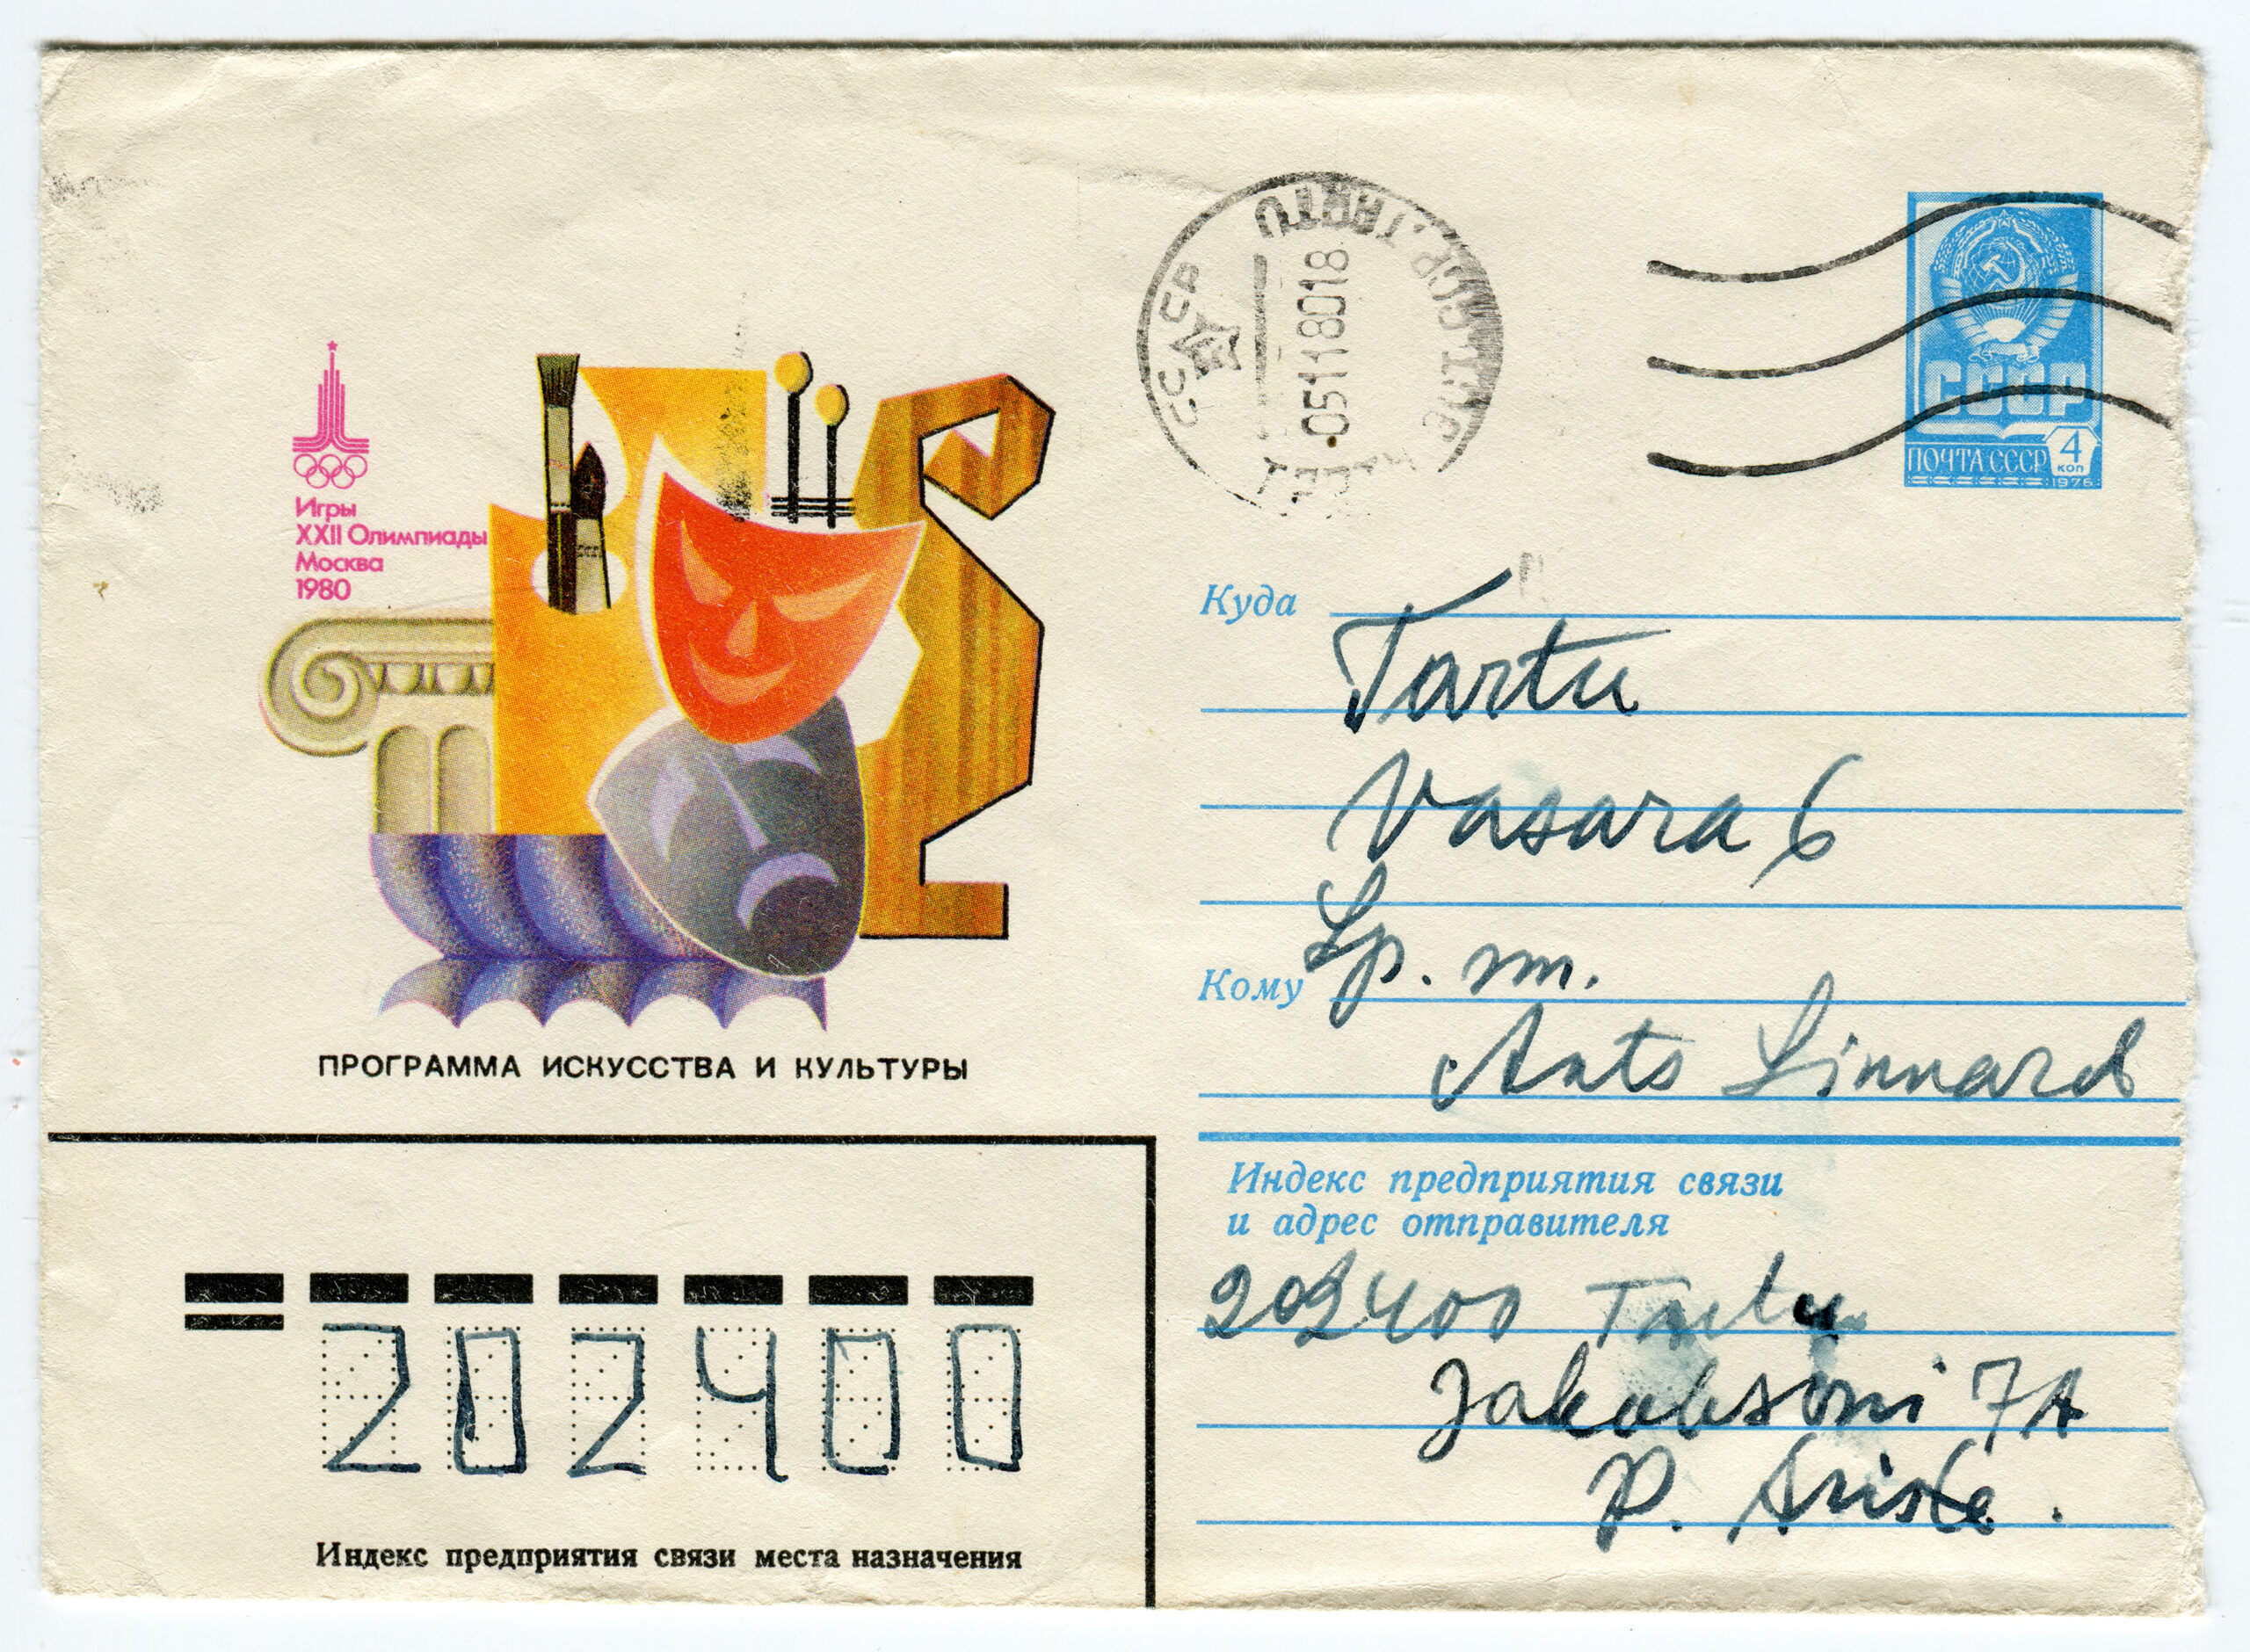 Игры
XXII Олимпиады
Москва
1980
ПРОГРАММА ИСКУССТВА И КУЛЬТУРЫ
СССР
TARTU
05118018
СССР
ПОЧТА СССР 4 коп
1976
Куда
Tartu
Vasara 6
Кому Lp. sm.
Ants Linnard
Индекс предприятия связи
и адрес отправителя
202400 Tartu
Jakobsoni 7A
P. Ariste.
202400
Индекс предприятия связи места назначения